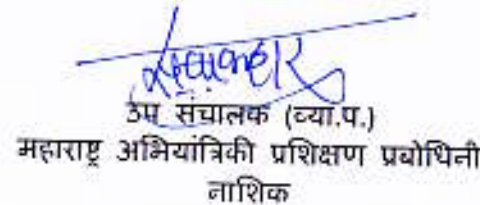 उप संचालक (व्या.प.)
महाराष्ट्र अभियांत्रिकी प्रशिक्षण प्रबोधिनी
नाशिक